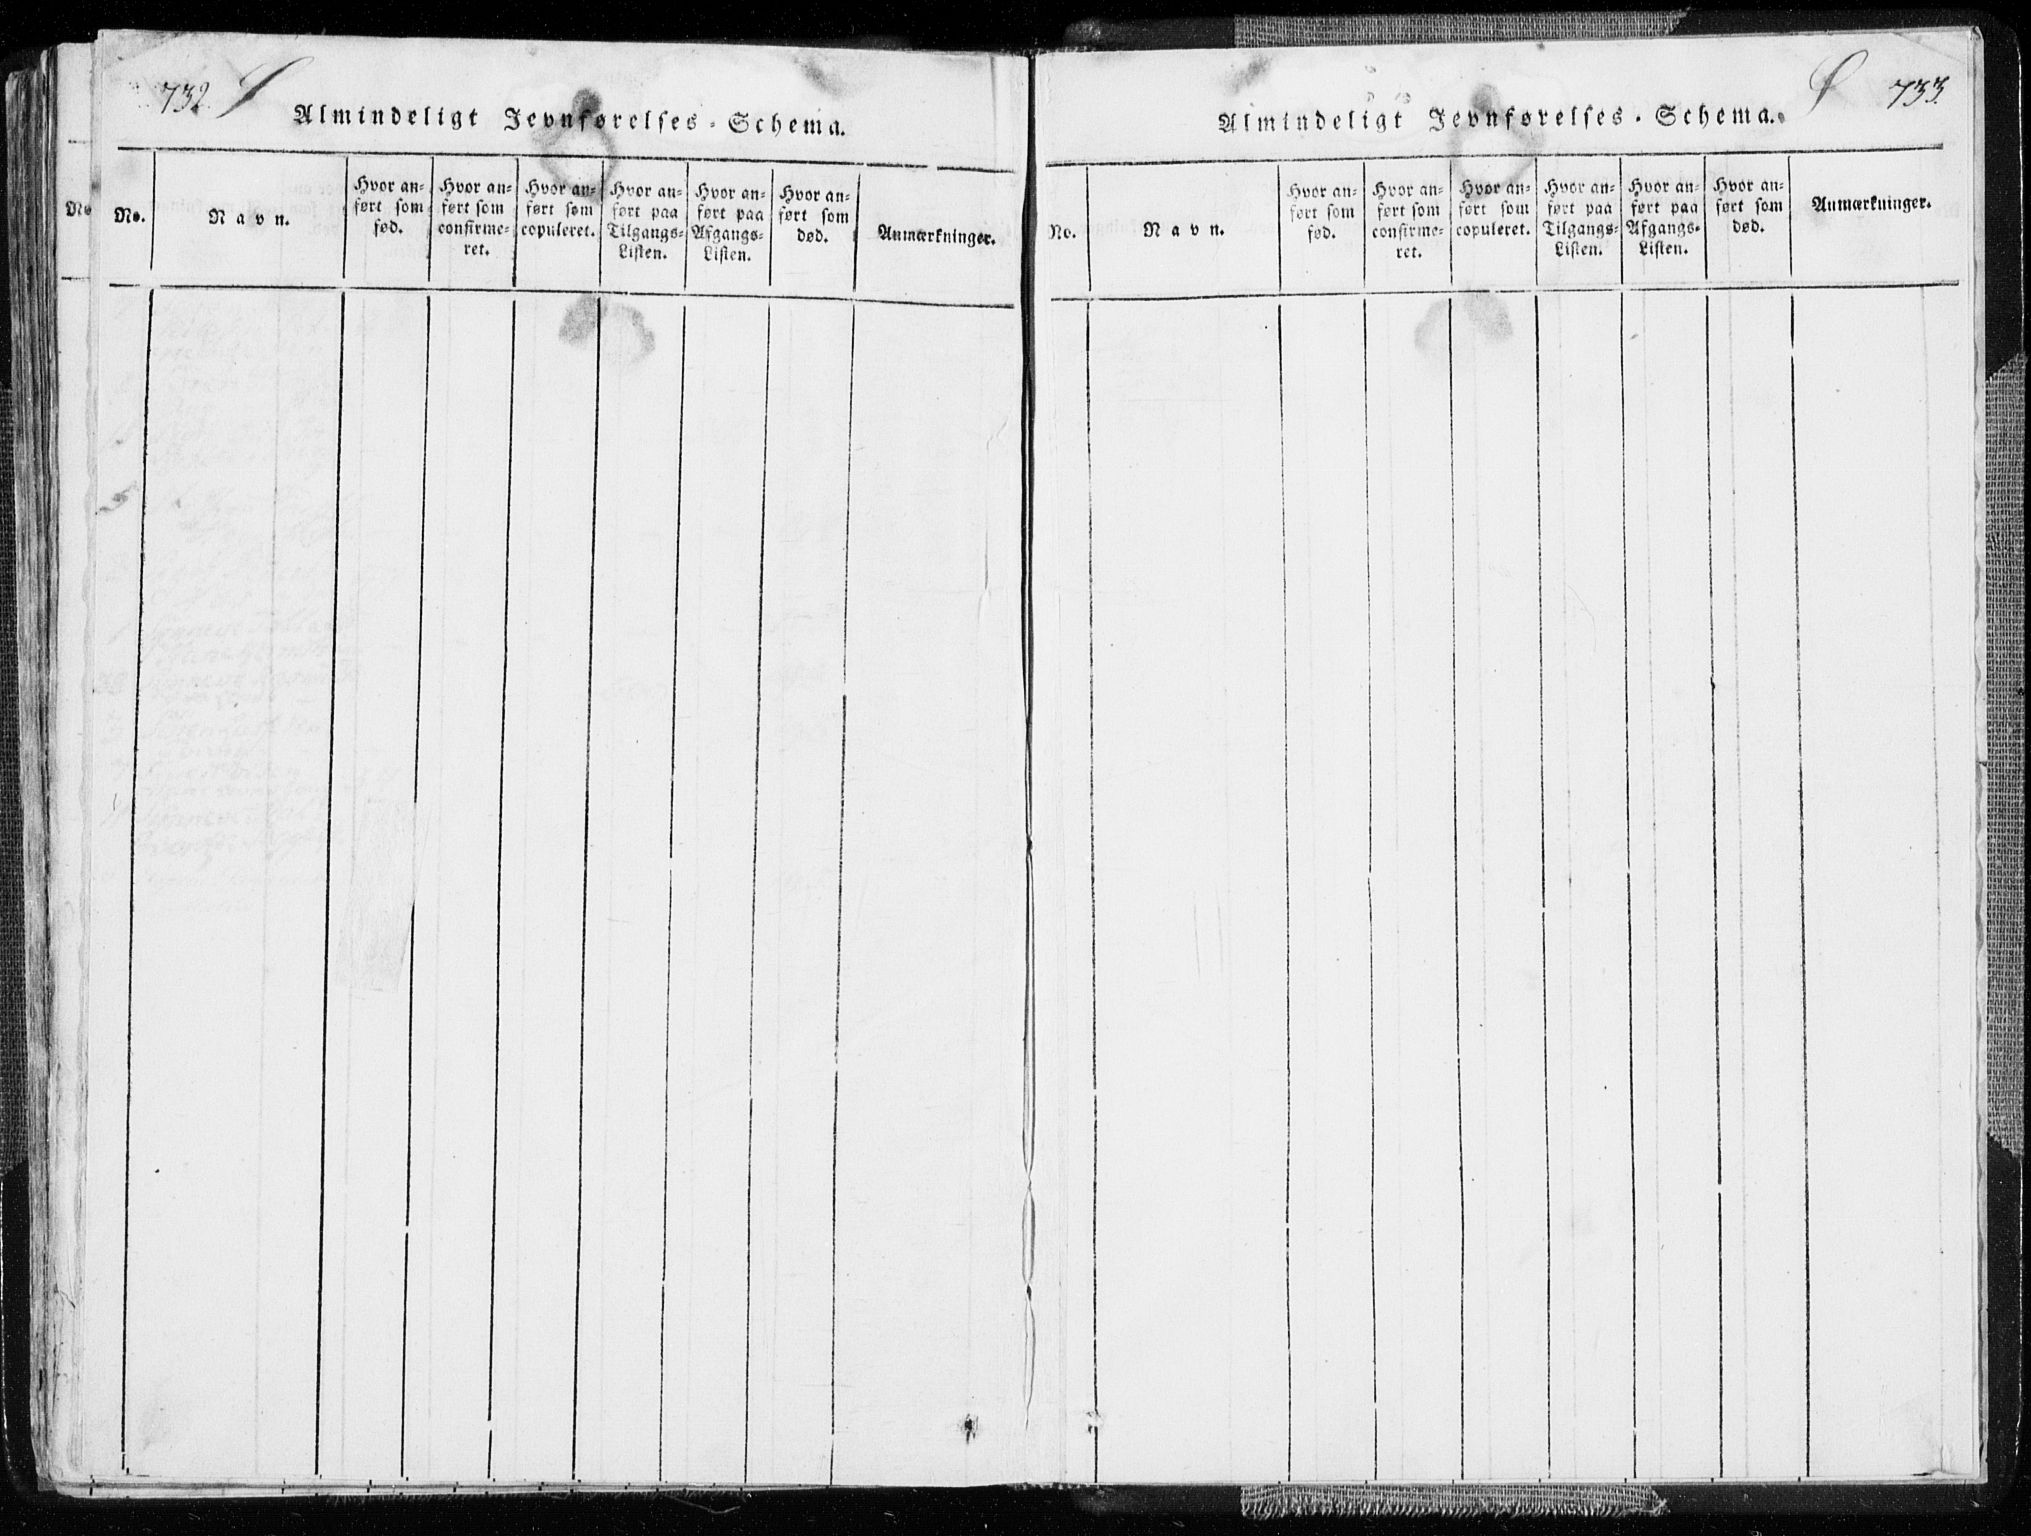 732
Almindeligt Jevnførelses-Schema.
No.
Navn.
Hvor an-
ført som
fød.
Hvor an-
ført som
confirme-
ret.
Hvor an-
ført som
copuleret.
Hvor an-
ført paa
Tilgangs-
Listen.
Hvor an-
ført paa
Afgangs-
Listen.
Hvor an-
ført som
død.
Anmærkninger.
Ø 733.
Almindeligt Jevnførelses-Schema.
No.
Navn.
Hvor an-
ført som
fød.
Hvor an-
ført som
confirme-
ret.
Hvor an-
ført som
copuleret.
Hvor an-
ført paa
Tilgangs-
Listen.
Hvor an-
ført paa
Afgangs-
Listen.
Hvor an-
ført som
død.
Anmærkninger.
No